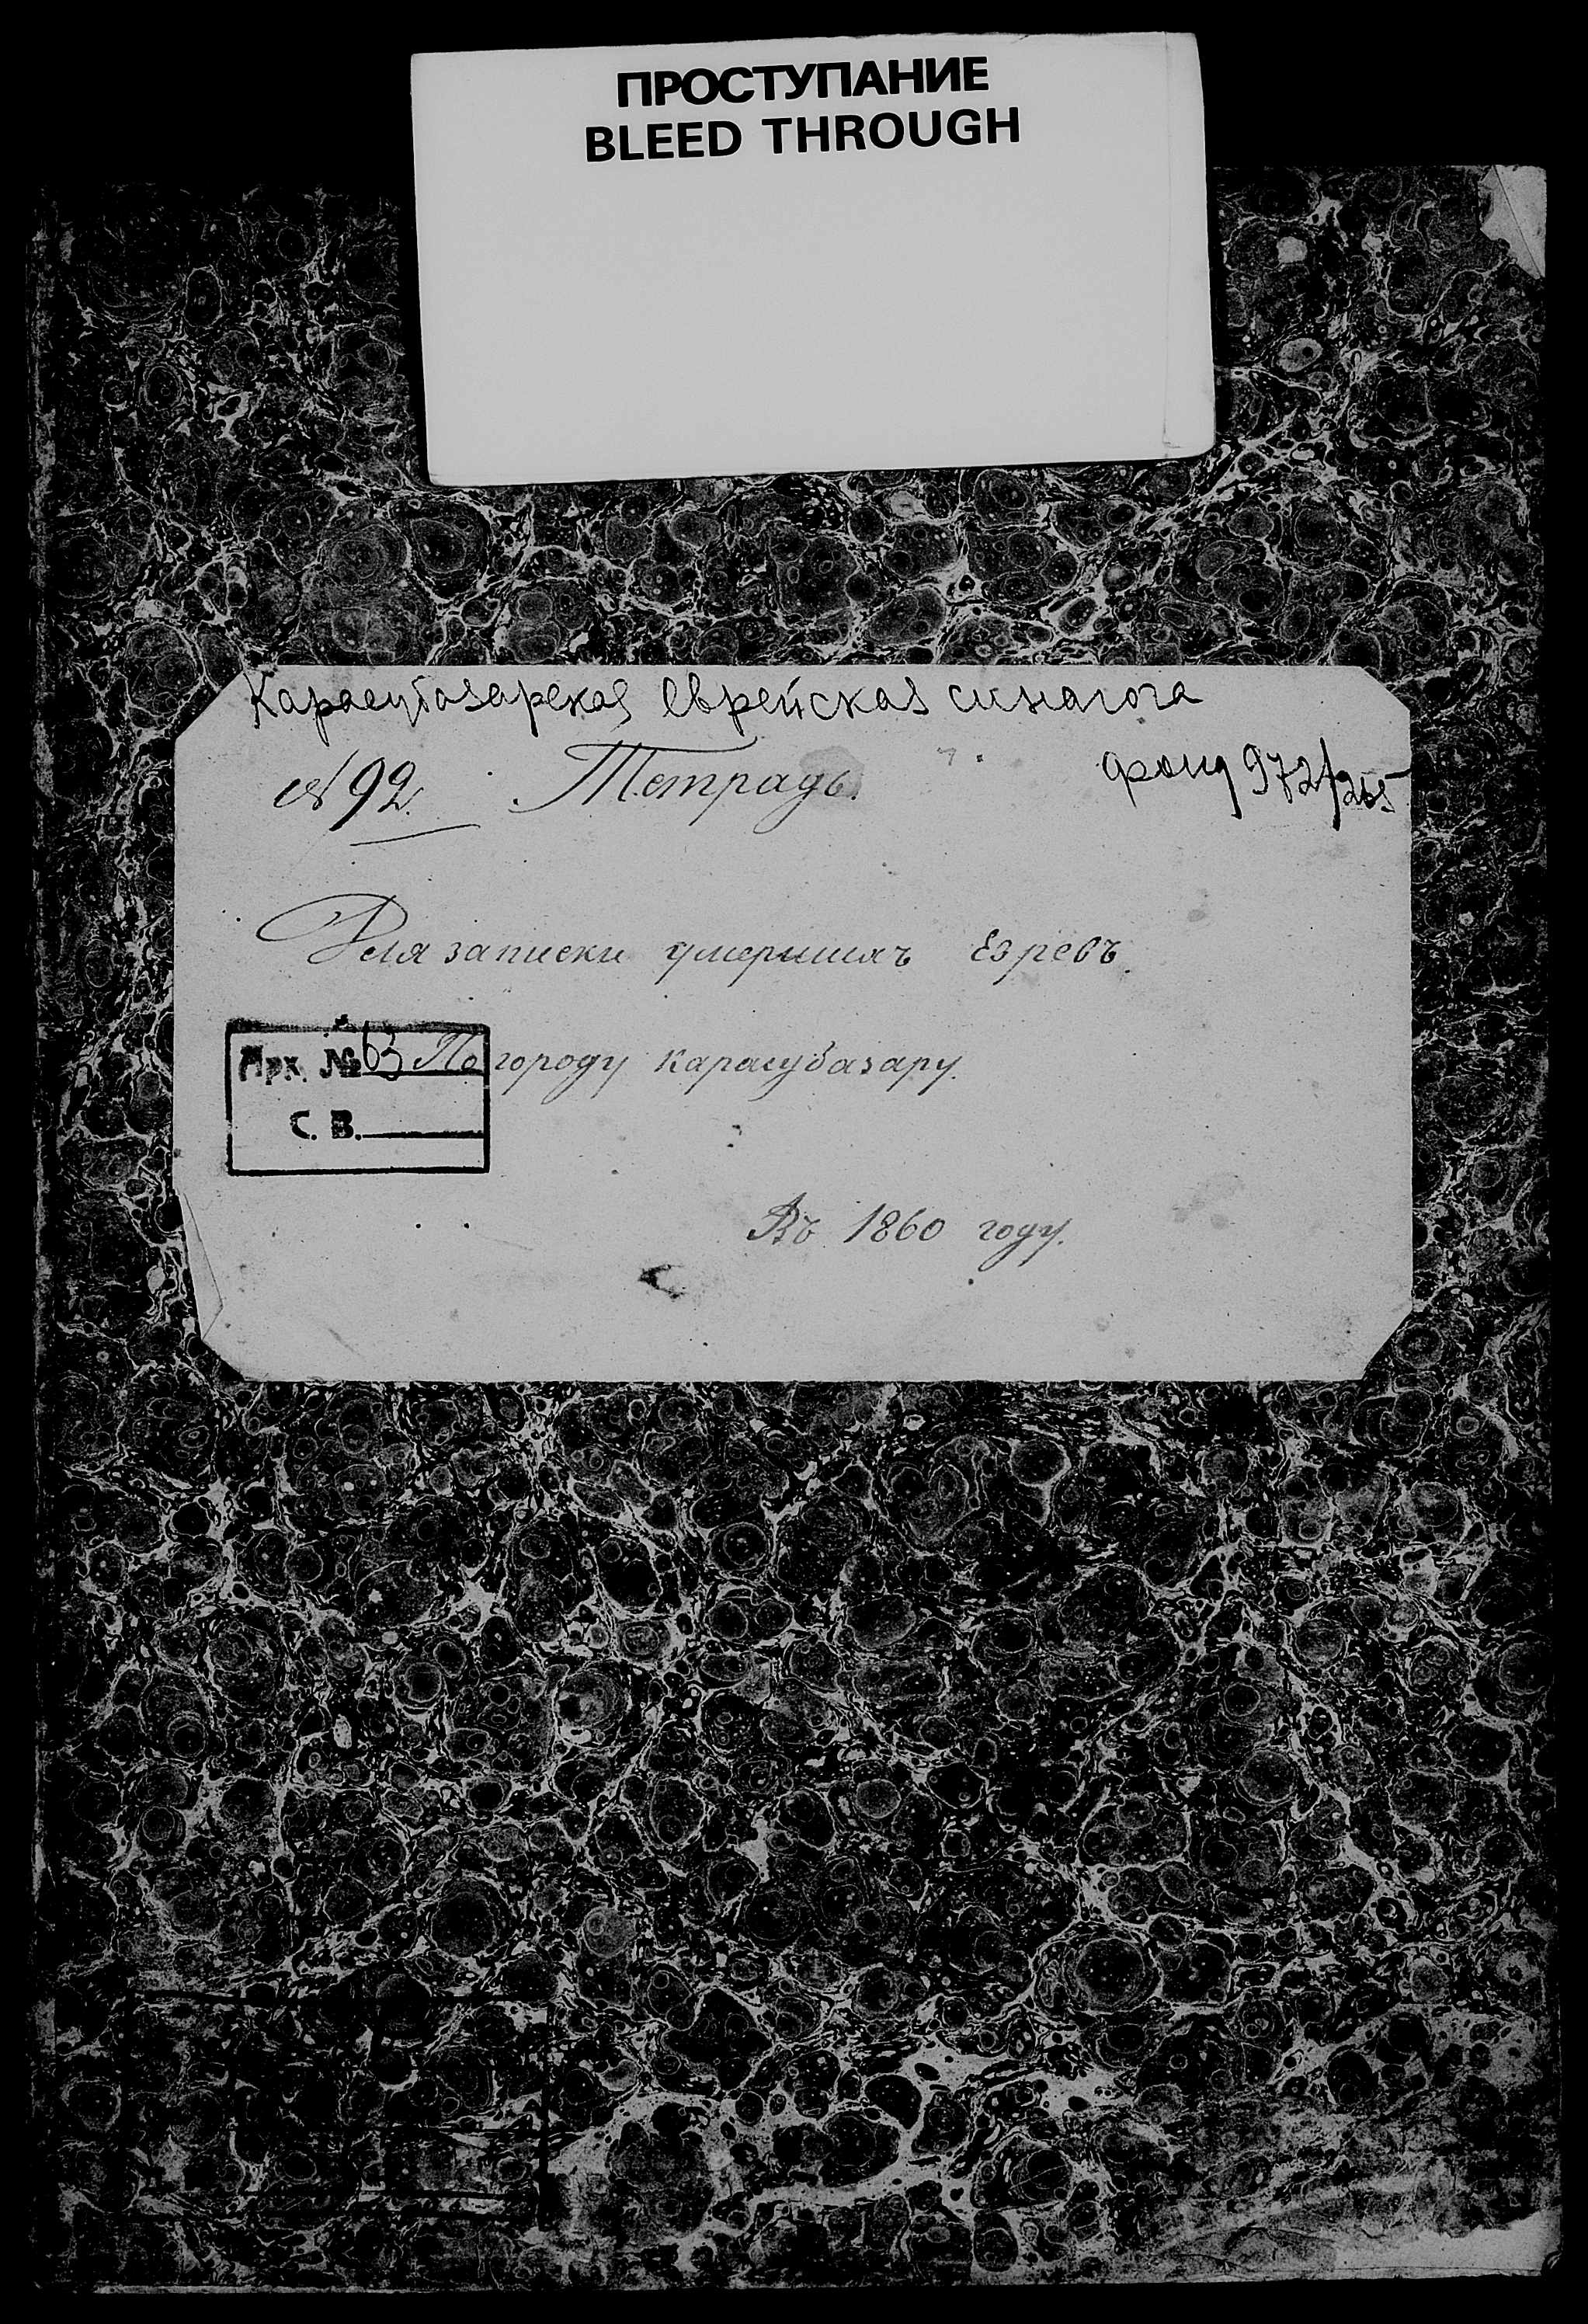 ПРОСТУПАНИЕ
BLEED THROUGH
Карасубазарская еврейская синагога
№ 92. Тетрадь. фонд 972/265
Для записки умершихъ Евревъ.
Арх. № 63 По городу Карасубазару.
С. В.
Въ 1860 году.